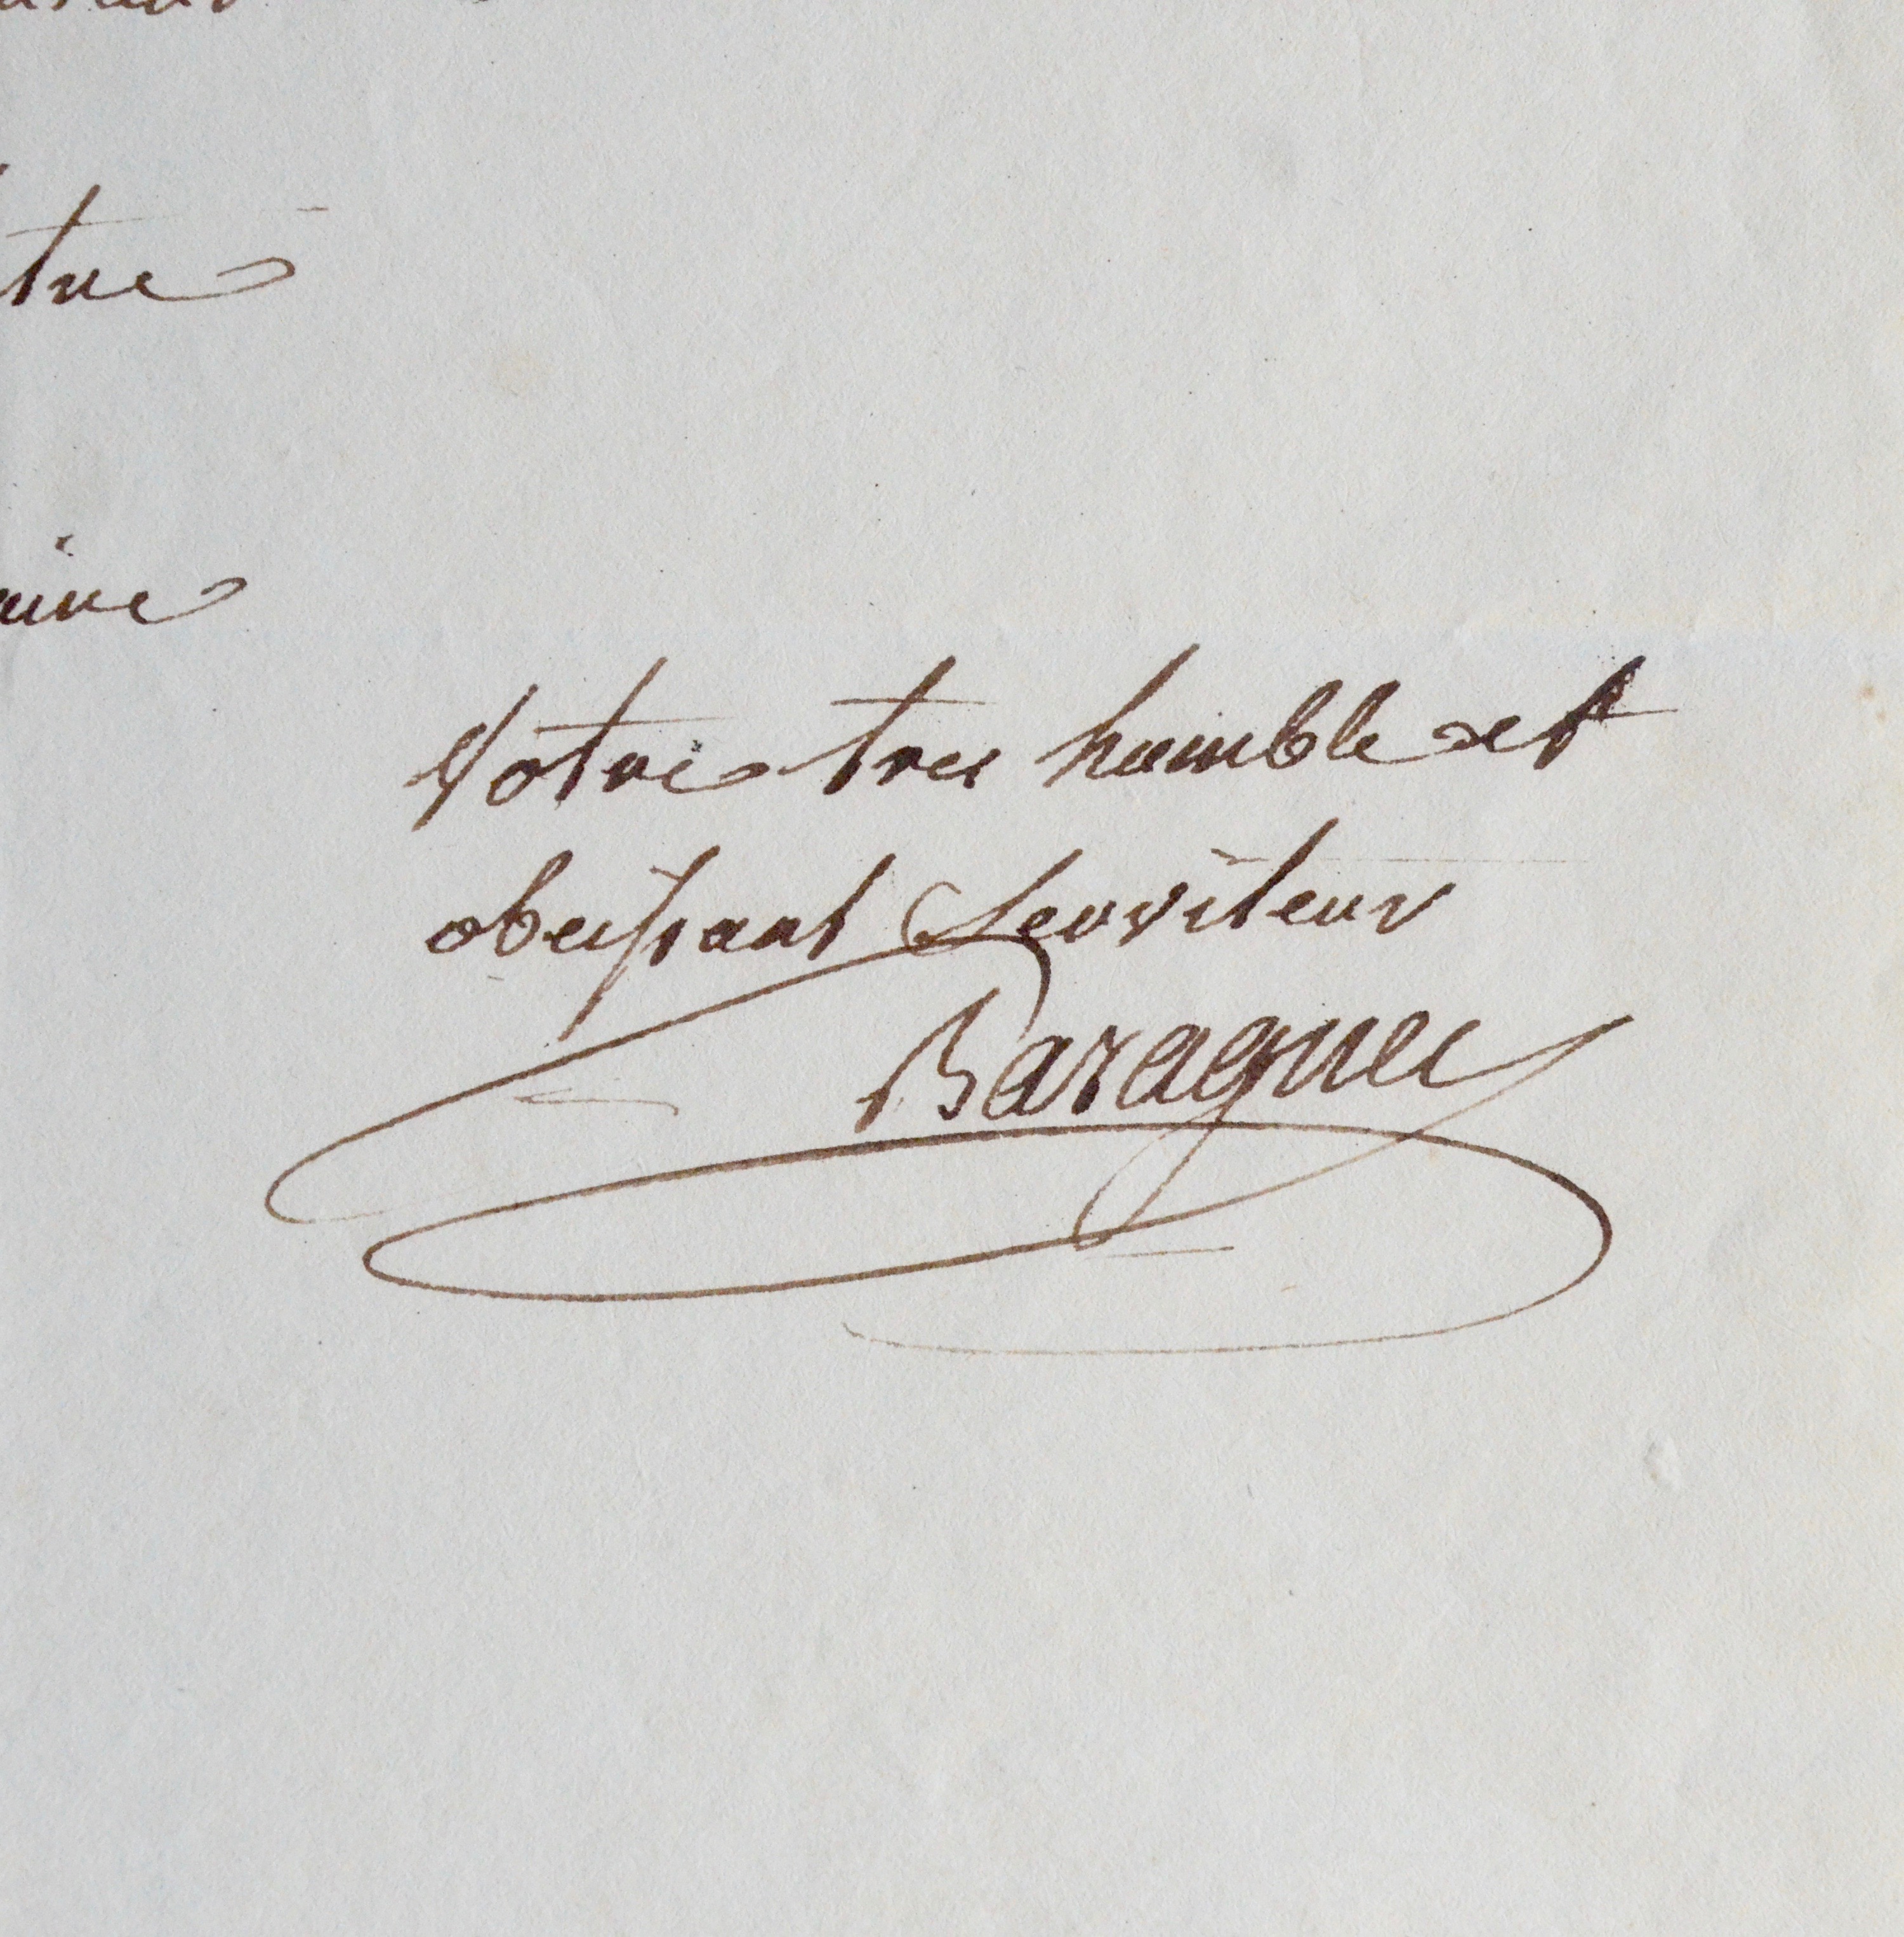 tre
aire
Votre tres humble et
obeissant Serviteur
Baraguei